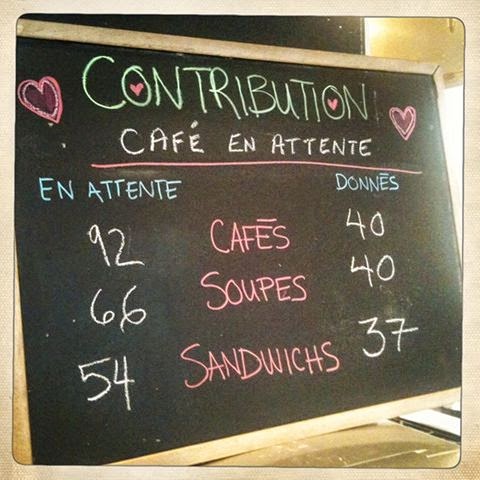 CONTRIBUTION
CAFÉ EN ATTENTE
EN ATTENTE DONNÉS
92 CAFÉS 40
66 SOUPES 40
54 SANDWICHS 37